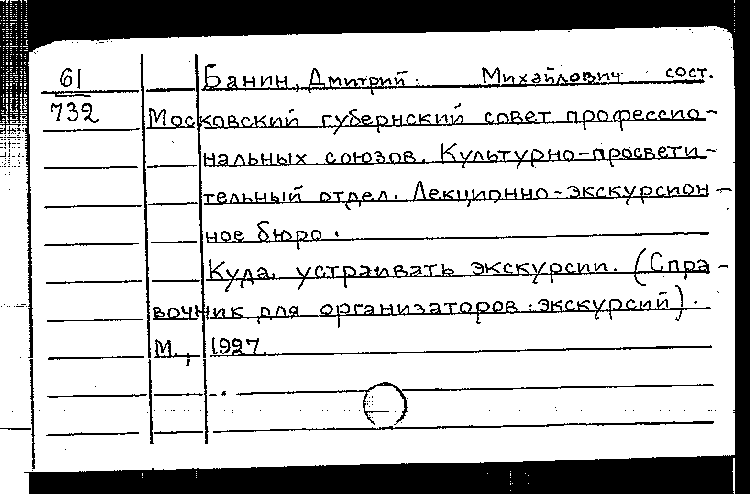 61
732
Банин, Дмитрий Михайлович сост.
Московский губернский совет профессио-
нальных союзов. Культурно-просвети-
тельный отдел. Лекционно-экскурсион-
ное бюро.
Куда устраивать экскурсии. (Спра-
вочник для организаторов экскурсий).
М., 1927.